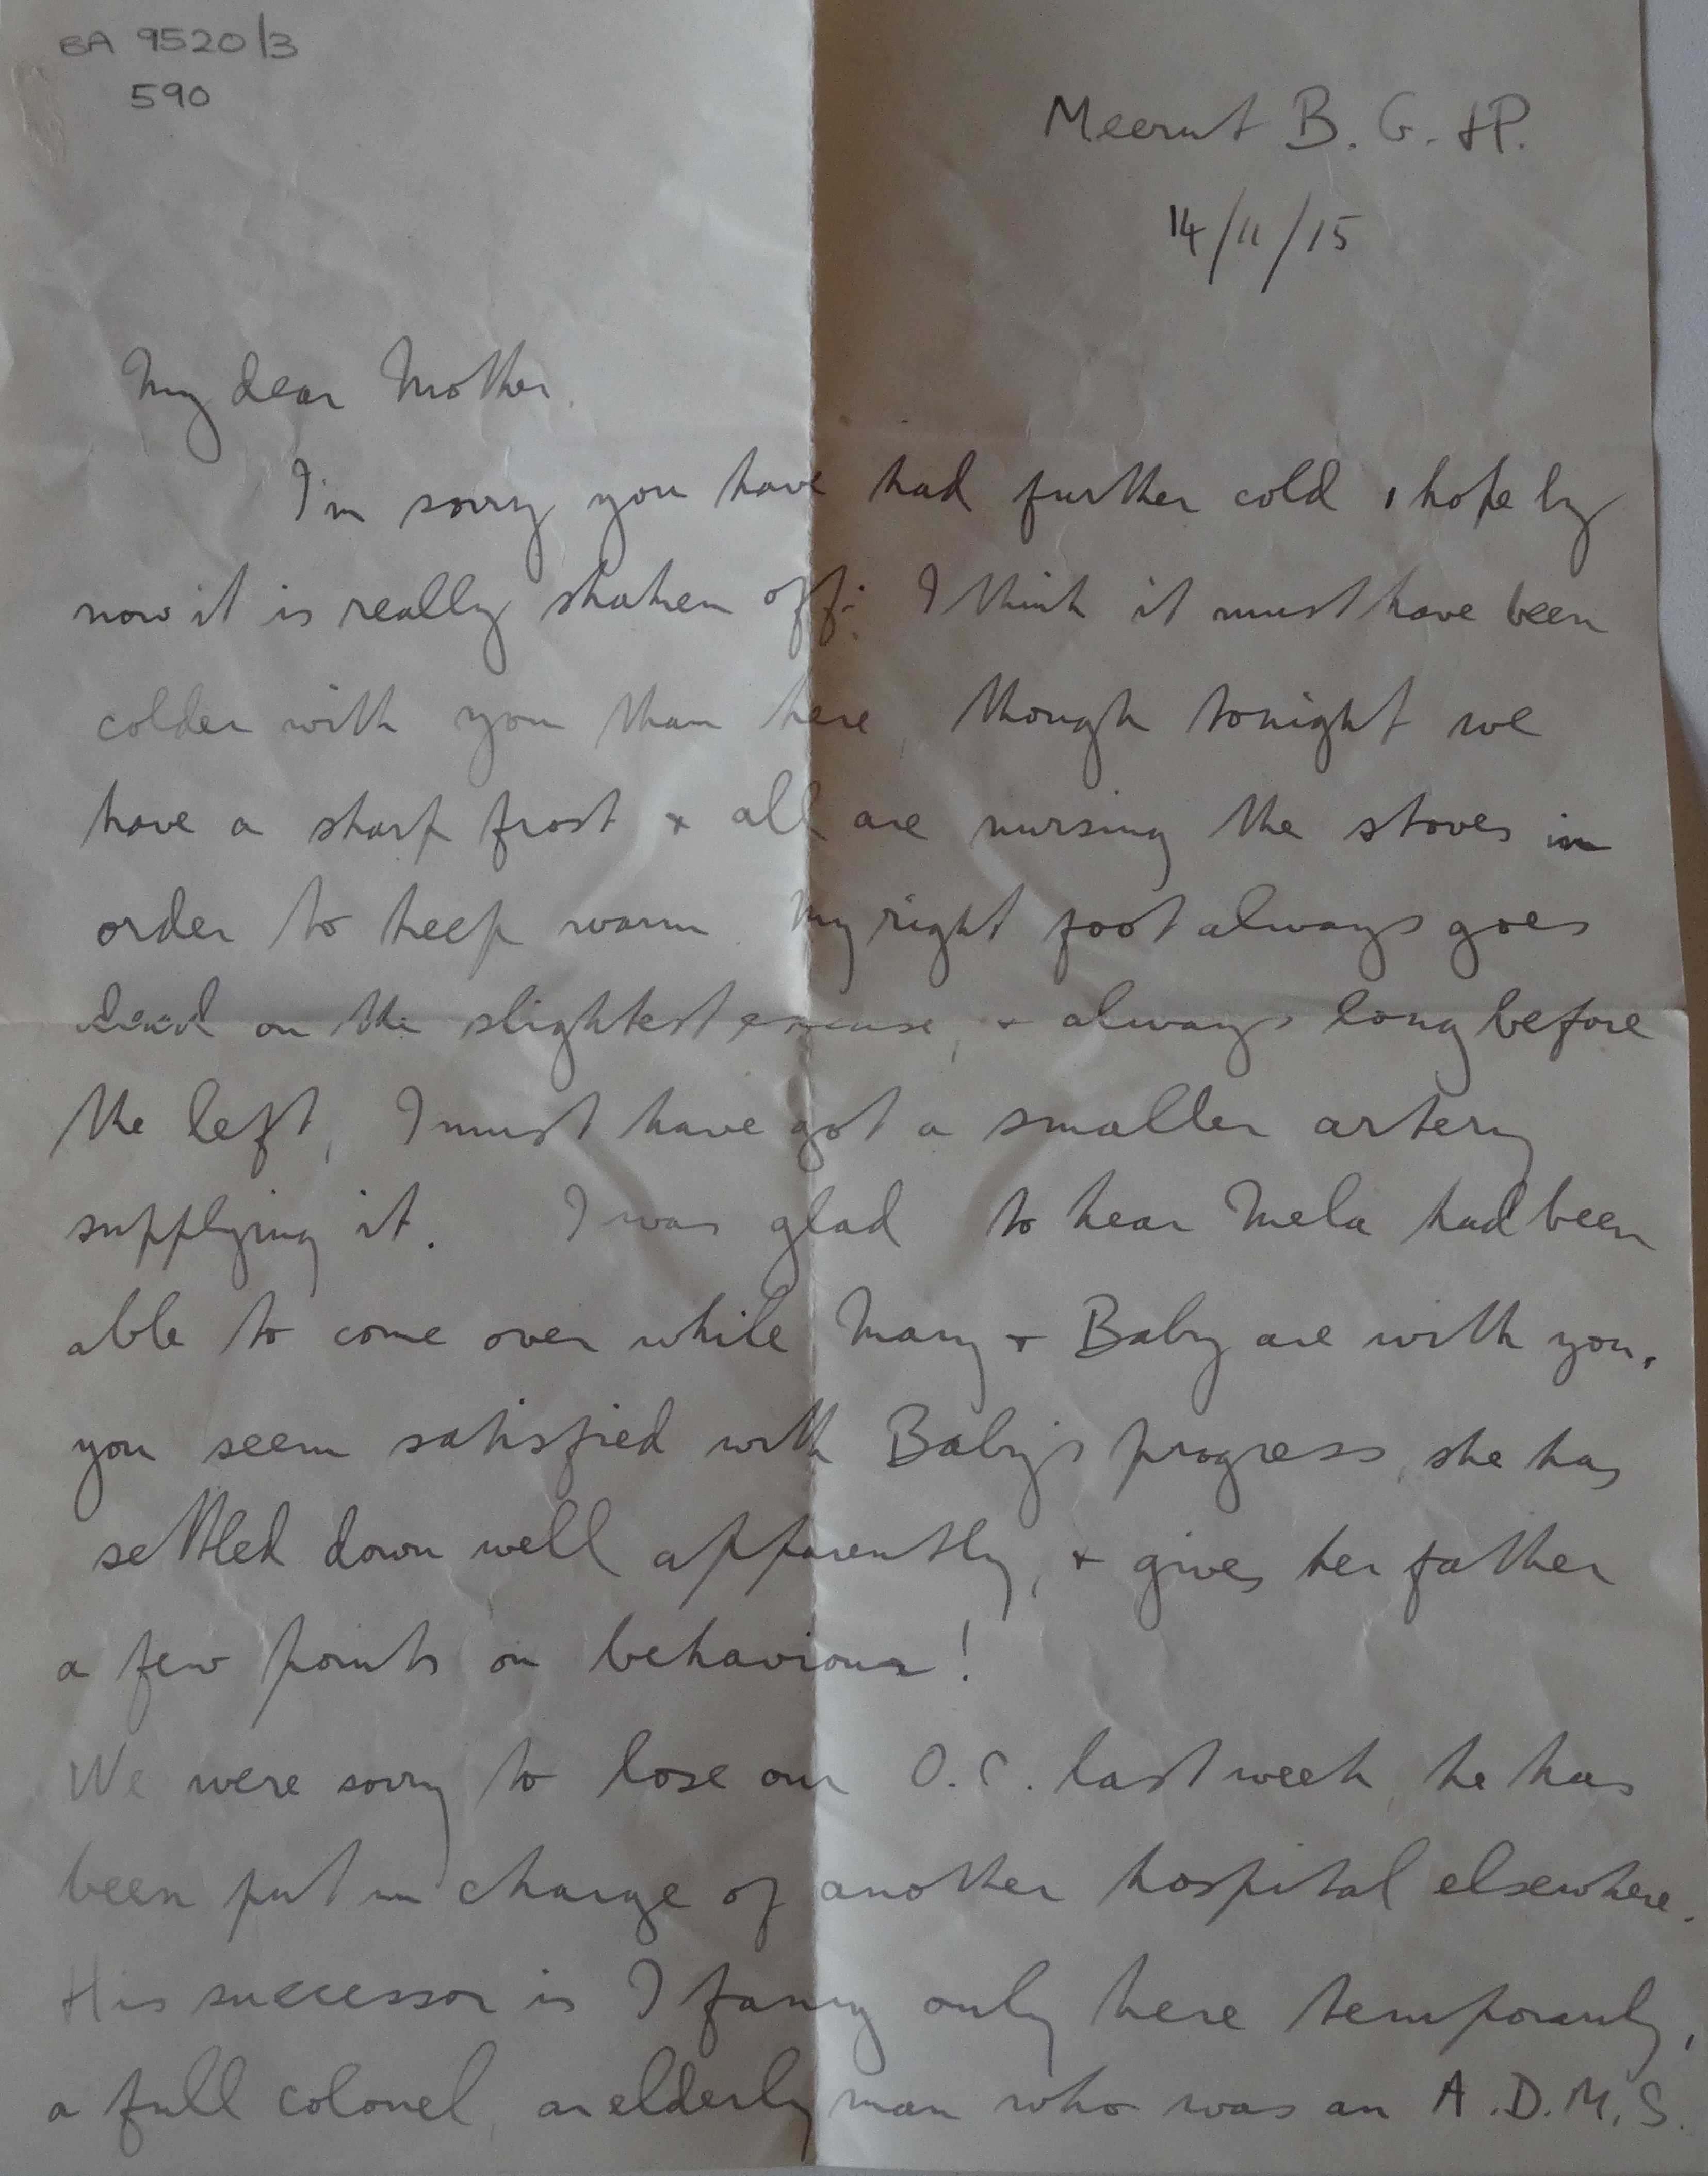 BA 9520/3
590
Meerut B. G. HP.
14/11/15
My dear Mother.
I'm sorry you have had further cold, hope by
now it is really shaken off: I think it must have been
colder with you than here, though tonight we
have a sharp frost + all are nursing the stoves in
order to keep warm. My right foot always goes
dead on the slightest excuse, + always long before
the left, I must have got a smaller artery
supplying it. I was glad to hear Mela had been
able to come over while Mary + Baby are with you.
you seem satisfied with Baby's progress, she has
settled down well apparently, + gives her father
a few points on behaviour!
We were sorry to lose our O.C. last week, he has
been put in charge of another hospital elsewhere.
His successor is I fancy only here temporarily,
a full colonel, an elderly man who was an A.D.M.S.